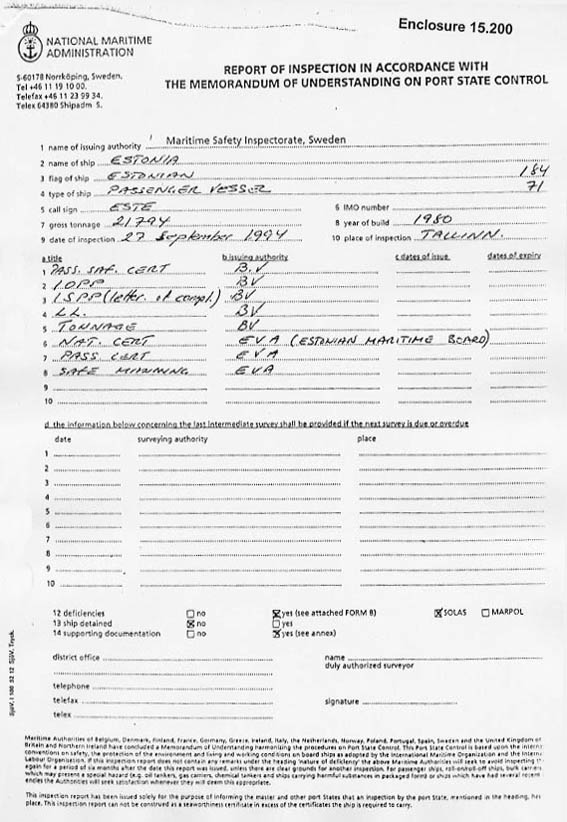 Enclosure 15.200
NATIONAL MARITIME
ADMINISTRATION
S-60178 Norrköping, Sweden.
Tel +46 11 19 10 00.
Telefax +46 11 23 99 34.
Telex 64380 Shipadm S.
REPORT OF INSPECTION IN ACCORDANCE WITH
THE MEMORANDUM OF UNDERSTANDING ON PORT STATE CONTROL
1 name of issuing authority Maritime Safety Inspectorate, Sweden
2 name of ship ESTONIA
3 flag of ship ESTONIAN 184
4 type of ship PASSENGER VESSEL 71
5 call sign ESTE 6 IMO number
7 gross tonnage 21794 8 year of build 1980
9 date of inspection 27 September 1994 10 place of inspection TALLINN.
a title b issuing authority c dates of issue dates of expiry
1 PASS. SAF. CERT B.V
2 IOPP BV
3 ISPP (letter of compl.) BV
4 LL. BV
5 TONNAGE BV
6 NAT. CERT EVA (ESTONIAN MARITIME BOARD)
7 PASS CERT EVA
8 SAFE MANNING EVA
9
10
d the information below concerning the last intermediate survey shall be provided if the next survey is due or overdue
date surveying authority place
1
2
3
4
5
6
7
8
9
10
12 deficiencies no yes (see attached FORM B) SOLAS MARPOL
13 ship detained no yes
14 supporting documentation no yes (see annex)
district office name
duly authorized surveyor
telephone
telefax signature
telex
SjöV. I 100 92 12 SjöV. Tryck.
Maritime Authorities of Belgium, Denmark, Finland, France, Germany, Greece, Ireland, Italy, the Netherlands, Norway, Poland, Portugal, Spain, Sweden and the United Kingdom of
Britain and Northern Ireland have concluded a Memorandum of Understanding harmonizing the procedures on Port State Control. This Port State Control is based upon the
conventions on safety, the protection of the environment and living and working conditions on board ships as adopted by the International Maritime Organization and the
Labour Organisation. If this inspection report does not contain any remarks under the heading 'nature of deficiency' the above Maritime Authorities will seek to avoid inspecting
again for a period of six months after the date this report was issued, unless there are clear grounds for another inspection. For passenger ships, roll-on/roll-off ships, bulk carriers
which may present a special hazard (e.g. oil tankers, gas carriers, chemical tankers and ships carrying harmful substances in packaged form) or ships which have had several recent
the Authorities will seek satisfaction whenever they will deem this appropriate.
This inspection report has been issued solely for the purpose of informing the master and other port States that an inspection by the port State, mentioned in the heading,
place. This inspection report can not be construed as a seaworthiness certificate in excess of the certificates the ship is required to carry.